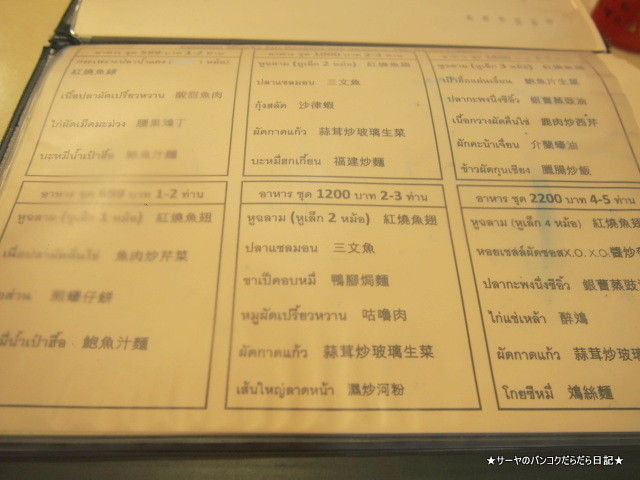 紅燒魚翅
เนื้อปลาผัดเปรี้ยวหวาน 酸甜魚肉
ไก่ผัดเม็ดมะม่วง 腰果鳮丁
บะหมี่น้ำเป๋าฮื้อ 鮑魚汁麵
หูฉลาม (หูเล็ก 2 หม้อ) 紅燒魚翅
ปลาแซลมอน 三文魚
กุ้งสลัด 沙律蝦
ผัดกาดแก้ว 蒜茸炒玻璃生菜
บะหมี่ฮกเกี้ยน 福建炒麵
หูฉลาม (หูเล็ก 3 หม้อ) 紅燒魚翅
鮑魚片生菜
ปลากะพงนึ่งซีอิ๊ว 銀蕾蒸豉油
เนื้อกวางผัดคื่นไช่ 鹿肉炒西芹
ผัดคะน้าเจี๋ยน 介蘭蠔油
ข้าวผัดกุนเชียง 臘腸炒飯
1-2 ท่าน
หูฉลาม (หูเล็ก 1 หม้อ) 紅燒魚翅
เนื้อปลาผัดคื่นไช่ 魚肉炒芹菜
煎蠔仔餅
หมี่น้ำเป๋าฮื้อ 鮑魚汁麵
อาหาร ชุด 1200 บาท 2-3 ท่าน
หูฉลาม (หูเล็ก 2 หม้อ) 紅燒魚翅
ปลาแซลมอน 三文魚
ขาเป็ดอบหมี่ 鴨腳焗麵
หมูผัดเปรี้ยวหวาน 咕嚕肉
ผัดกาดแก้ว 蒜茸炒玻璃生菜
เส้นใหญ่ลาดหน้า 濕炒河粉
อาหาร ชุด 2200 บาท 4-5 ท่าน
หูฉลาม (หูเล็ก 4 หม้อ) 紅燒魚翅
หอยเชลล์ผัดซอสX.O. X.O.醬炒
ปลากะพงนึ่งซีอิ๊ว 銀蕾蒸豉
ไก่แช่เหล้า 醉鳮
ผัดกาดแก้ว 蒜茸炒玻璃
โกยซีหมี่ 鳮絲麵
★サーヤのバンコクだらだら日記★